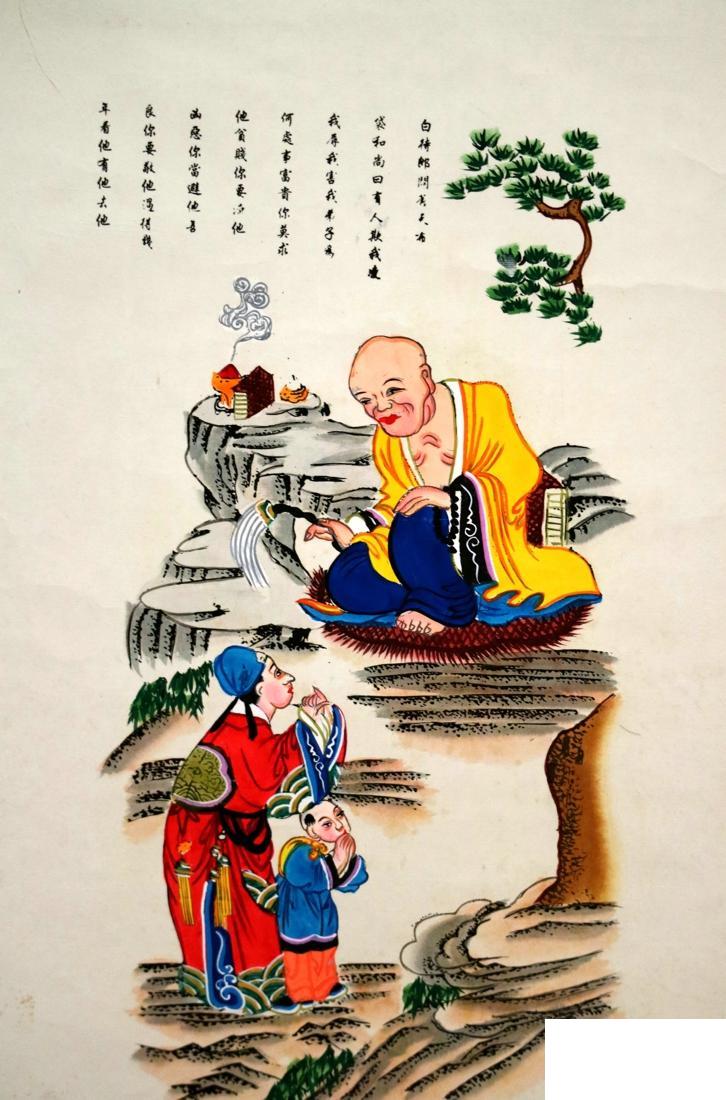 白侍郎問答天布
袋和尚曰有人欺我凌
我辱我害我弟子為
何處事富貴你莫求
他貧賤你要
凶惡你當避他善
良你要敬他過得幾
年看他有他去他